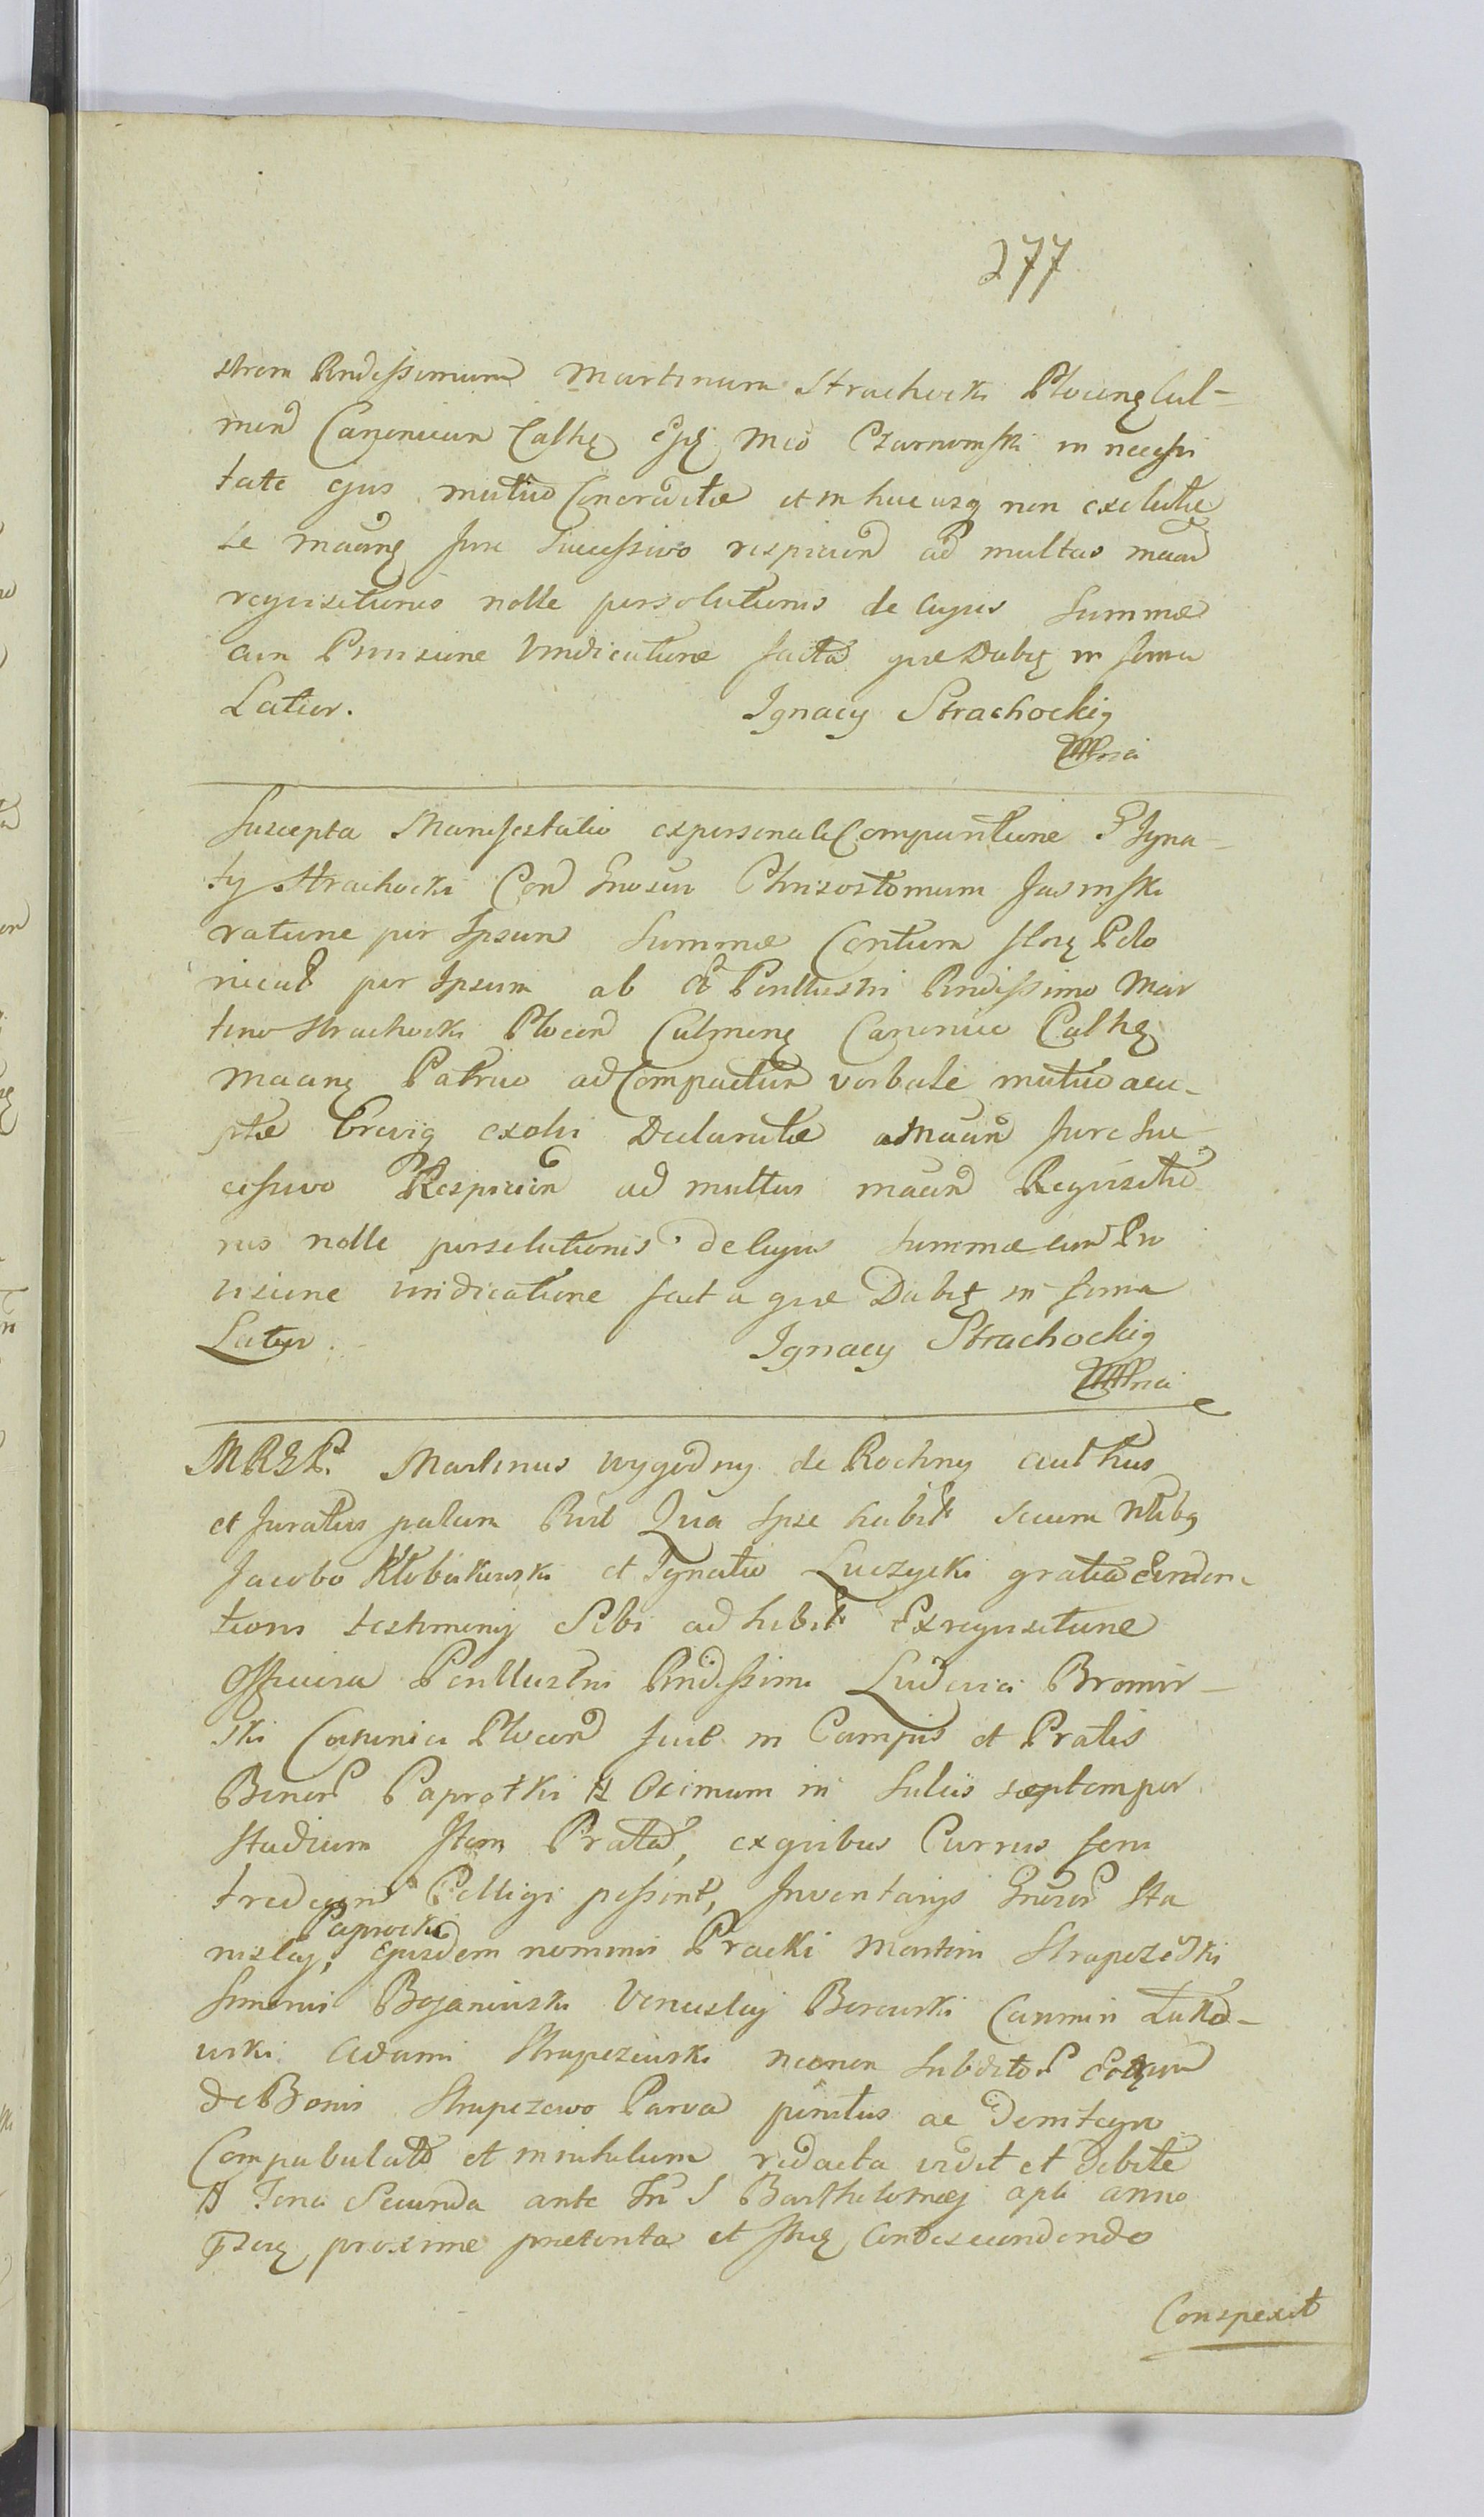 277
strem Rndissimum Martinum Strachocki Plocenę Cul-
men Canonicum Cathę Mco Czarnomski in necessi
tate ejus mutuo Concreditæ et in huc usq non exolutæ
se maxnę Jure Successivo respicien ad multas maan
requisitiones nolle persolutionis de cujus Summæ
cum Provisione Vindicatione facta quæ Dabię in forma
Latior.
Ignacy Strachocki
Suscepta Manifestatio ex personali Comparitione G Igna-
ty Strachocki Con Gnosum Chrisostomum Jasinski
ratione per Ipsum Summæ Centum flnę Polo
nical per Ipsum ab Perillustri Rndissimo Mar
tino Strachocki Plocen Culmenę Canonico Cathę
maanę Patruo ad Compactum verbale mutuo acce-
ptæ brevię exolvi Declaratæ a maan Jure Suc
cessivo Respicien ad multas maan Requisitio
nes nolle persolutionis de cujus Summæ cum Pro
visione vindicatione facta quæ Dabię in forma
Latior.
Ignacy Strachocki
MRGP. Martinus Wygodny de Rochny authus
et Juratus palam Rcit Qua Ipse habit secum Nlibg
Jacobo Kłobukowski et Ignatio Luczycki gratia eviden-
tioris testimony Sibi adhibit Ex requisitione
Officiosa Perillustris Rndissimi Ludovici Bromir-
ski Canonici Plocen fuit in Campis et Pratis
Bonor Paprotki H Ocimum in Suliis septem per
Studium Item Prata, ex quibus Currus feni
tredecim Colligi possint, Inventarys Gnosor Sta
nislay, Paprocki Ejusdem nominis Pracki Martini Strapczeski
Simonis Bojanowski Venceslaj Borowski Casimiri Lutko-
wski Adami Strupczewski necnon Subditor Eorum
de Bonis Strupczewo Parva penitus ac Deintegro
Compabulata et in nihilum redacta vidit et debite
H Feria Secunda ante Fm S Barthelomæj apli anno
proxime præterita et Condescendendo
Conspexit